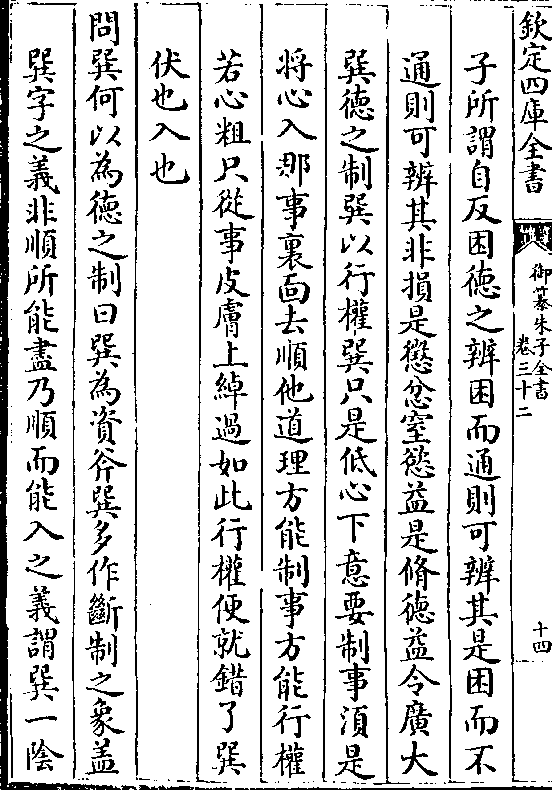 欽定四庫全書
御纂朱子全書
卷三十二
十四
子所謂自反困德之辨困而通則可辨其是困而不
通則可辨其非損是懲忿窒慾益是脩德益令廣大
巽德之制巽以行權巽只是低心下意要制事須是
將心入那事裏面去順他道理方能制事方能行權
若心粗只從事皮膚上綽過如此行權便就錯了巽
伏也入也
問巽何以為德之制曰巽為資斧巽多作斷制之象盖
巽字之義非順所能盡乃順而能入之義謂巽一陰